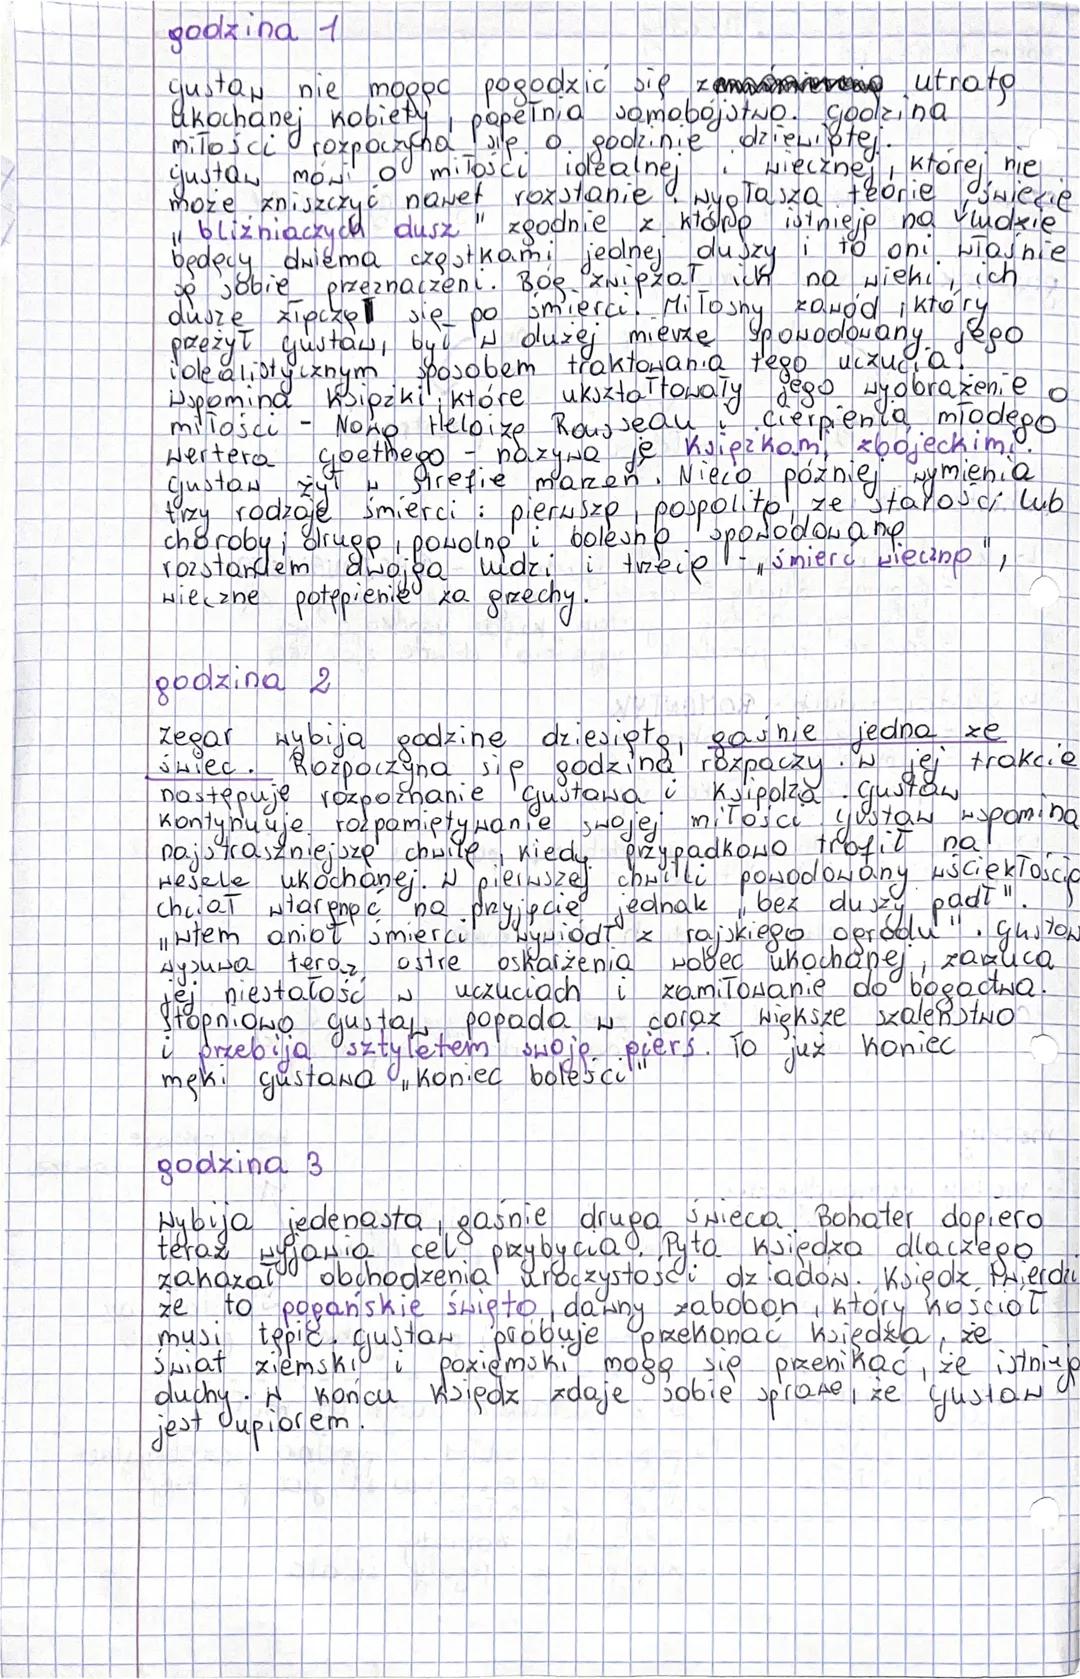 godzina 1
Gustaw nie mogąc pogodzić się z utratą
ukochanej kobiety, popełnia samobójstwo. Godzina
miłości rozpoczyna się o godzinie dziewiątej.
Gustaw mówi o miłości idealnej i wiecznej, której nie
może zniszczyć nawet rozstanie. Wygłasza teorię świecie
"bliźniaczych dusz" zgodnie z którą istnieją na ludzie
będący dwiema cząstkami jednej duszy i to oni właśnie
są sobie przeznaczeni. Bóg związał ich na wieki, ich
dusze złączą się po śmierci. Miłosny zawód, który
przeżył Gustaw, był w dużej mierze spowodowany jego
idealistycznym sposobem traktowania tego uczucia.
Wspomina książki, które ukształtowały jego wyobrażenie o
miłości - Nową Heloizę Rousseau i cierpienia młodego
Wertera Goethego - nazywa je książkami zbójeckimi.
Gustaw żył w strefie marzeń. Nieco później wymienia
trzy rodzaje śmierci: pierwszą, pospolitą, ze starości lub
choroby; drugą, powolną i bolesną spowodowaną
rozstaniem dwojga ludzi i trzecią - "śmierć wieczną",
wieczne potępienie za grzechy.
godzina 2
Zegar wybija godzinę dziesiątą, gaśnie jedna ze
świec. Rozpoczyna się godzina rozpaczy. W jej trakcie
następuje rozpoznanie Gustawa i księdza. Gustaw
kontynuuje rozpamiętywanie swojej miłości Gustaw wspomina
najstraszniejszą chwilę, kiedy przypadkowo trafił na
wesele ukochanej. W pierwszej chwili powodowany wściekłością
chciał wtargnąć na przyjęcie jednak "bez duszy padł".
"Wtem anioł śmierci wywiódł z rajskiego ogrodu". Gustaw
wysuwa teraz ostre oskarżenia wobec ukochanej, zarzuca
jej niestałość w uczuciach i zamiłowanie do bogactwa.
Stopniowo Gustaw popada w coraz większe szaleństwo
i przebija sztyletem swoją pierś. To już koniec
męki Gustawa "koniec boleści"
godzina 3
Wybija jedenasta, gaśnie druga świeca. Bohater dopiero
teraz wyjawia cel przybycia. Pyta księdza dlaczego
zakazał obchodzenia uroczystości dziadów. Ksiądz twierdzi
że to pogańskie święto, dawny zabobon, który kościół
musi tępić. Gustaw próbuje przekonać księdza, że
świat ziemski i poziemski mogą się przenikać, że istnieją
duchy. W końcu ksiądz zdaje sobie sprawę, że Gustaw
jest upiorem.